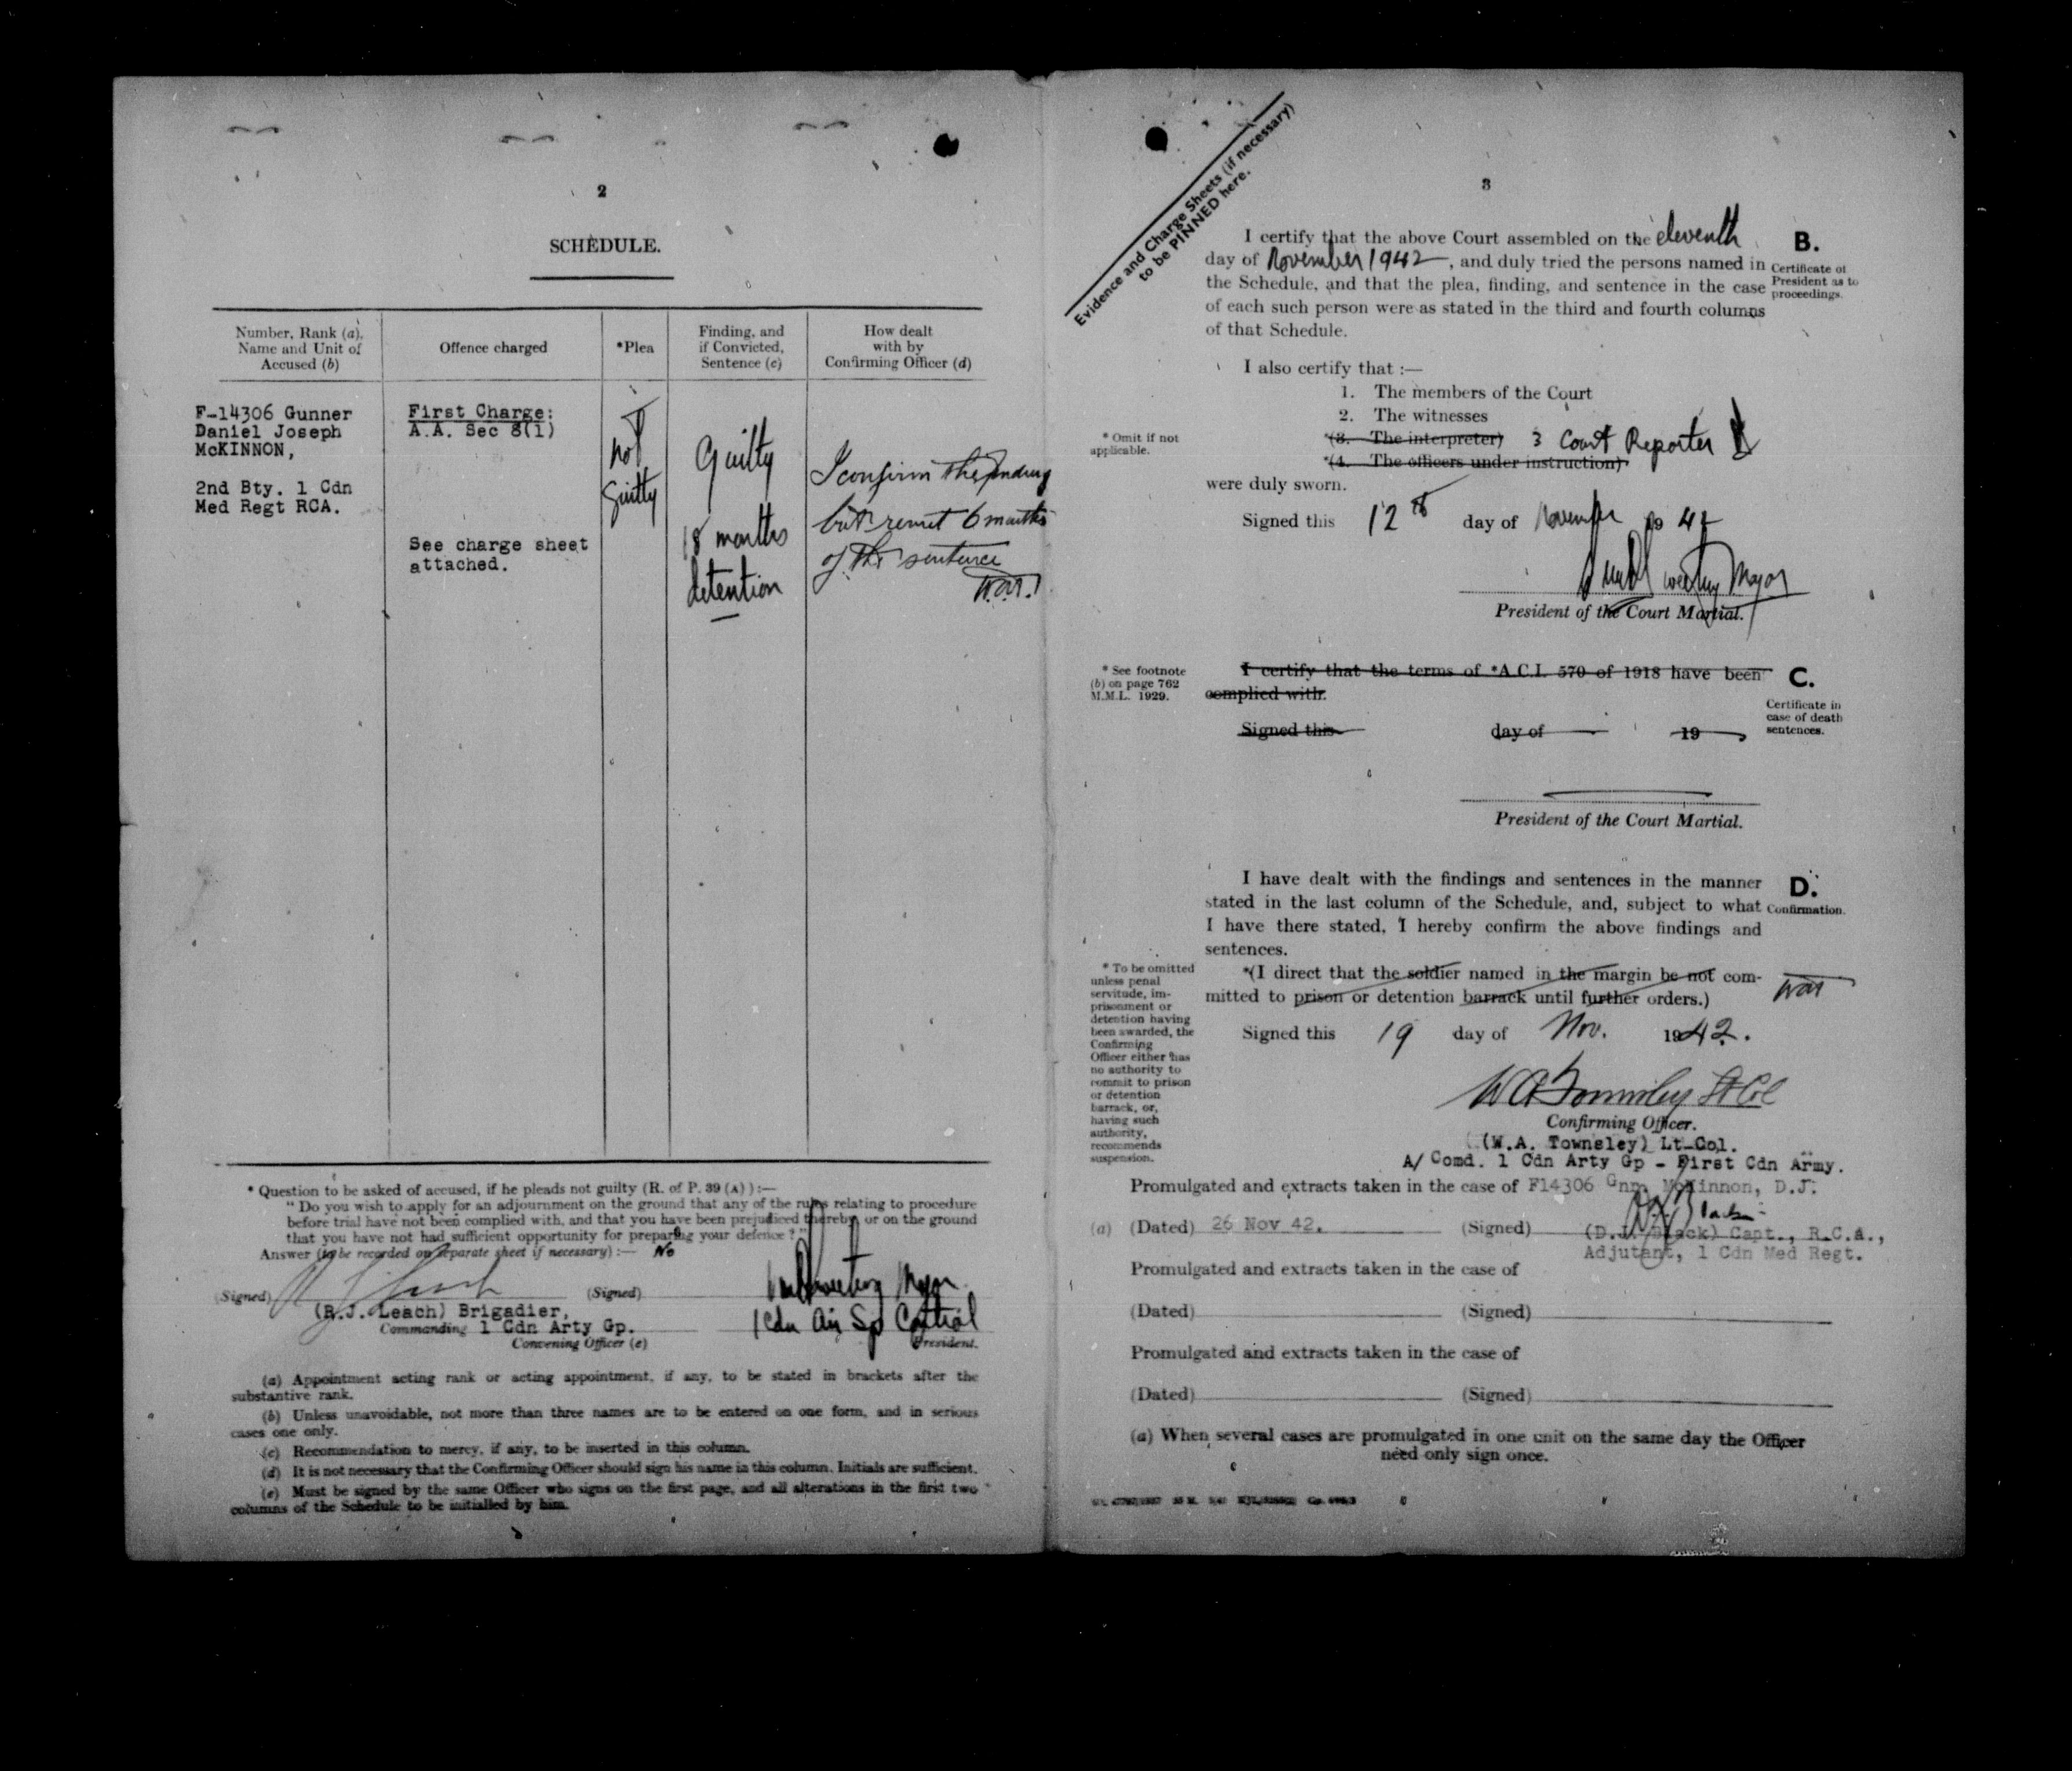 2
SCHEDULE.
Number, Rank (a),
Name and Unit of
Accused (b)
Offence charged
*Plea
Finding, and
if Convicted,
Sentence (c)
How dealt
with by
Confirming Officer (d)
F-14306 Gunner
Daniel Joseph
McKINNON,
2nd Bty. 1 Cdn
Med Regt RCA.
First Charge:
A.A. Sec 8(1)
See charge sheet
attached.
not
guilty
Guilty
18 months
detention
I confirm the finding
but remit 6 months
of the sentence
W.A.T.
* Question to be asked of accused, if he pleads not guilty (R. of P. 39 (A) ):—
" Do you wish to apply for an adjournment on the ground that any of the rules relating to procedure
before trial have not been complied with, and that you have been prejudiced thereby, or on the ground
that you have not had sufficient opportunity for preparing your defence ? "
Answer (to be recorded on separate sheet if necessary) :— No
(Signed)
(Signed)
Major
(R.J. Leach) Brigadier,
Commanding 1 Cdn Arty Gp.
Convening Officer (e)
1 Cdn Air Sp Control
President.
(a) Appointment acting rank or acting appointment, if any, to be stated in brackets after the
substantive rank.
(b) Unless unavoidable, not more than three names are to be entered on one form, and in serious
cases one only.
(c) Recommendation to mercy, if any, to be inserted in this column.
(d) It is not necessary that the Confirming Officer should sign his name in this column. Initials are sufficient.
(e) Must be signed by the same Officer who signs on the first page, and all alterations in the first two
columns of the Schedule to be initialled by him.
3
Evidence and Charge Sheets (if necessary)
to be PINNED here.
I certify that the above Court assembled on the eleventh
day of November 1942, and duly tried the persons named in
the Schedule, and that the plea, finding, and sentence in the case
of each such person were as stated in the third and fourth columns
of that Schedule.
B.
Certificate of
President as to
proceedings.
I also certify that :—
1. The members of the Court
2. The witnesses
*(3. The interpreter) 3 Court Reporter
*(4. The officers under instruction)
* Omit if not
applicable.
were duly sworn.
Signed this 12th day of November 1942
Major
President of the Court Martial.
* See footnote
(b) on page 762
M.M.L. 1929.
I certify that the terms of *A.C.I. 570 of 1918 have been
complied with.
C.
Certificate in
case of death
sentences.
Signed this day of 19
President of the Court Martial.
I have dealt with the findings and sentences in the manner
stated in the last column of the Schedule, and, subject to what
I have there stated, I hereby confirm the above findings and
sentences.
D.
Confirmation.
* To be omitted
unless penal
servitude, im-
prisonment or
detention having
been awarded, the
Confirming
Officer either has
no authority to
commit to prison
or detention
barrack, or,
having such
authority,
recommends
suspension.
*(I direct that the soldier named in the margin be not com-
mitted to prison or detention barrack until further orders.)
WAT
Signed this 19 day of Nov. 1942.
WA Townsley Lt Col
Confirming Officer.
(W.A. Townsley) Lt-Col.
A/ Comd. 1 Cdn Arty Gp - First Cdn Army.
Promulgated and extracts taken in the case of F14306 Gnr. McKinnon, D.J.
(a) (Dated) 26 Nov 42. (Signed)
(D.J. Black) Capt., R.C.A.,
Adjutant, 1 Cdn Med Regt.
Promulgated and extracts taken in the case of
(Dated) (Signed)
Promulgated and extracts taken in the case of
(Dated) (Signed)
(a) When several cases are promulgated in one unit on the same day the Officer
need only sign once.